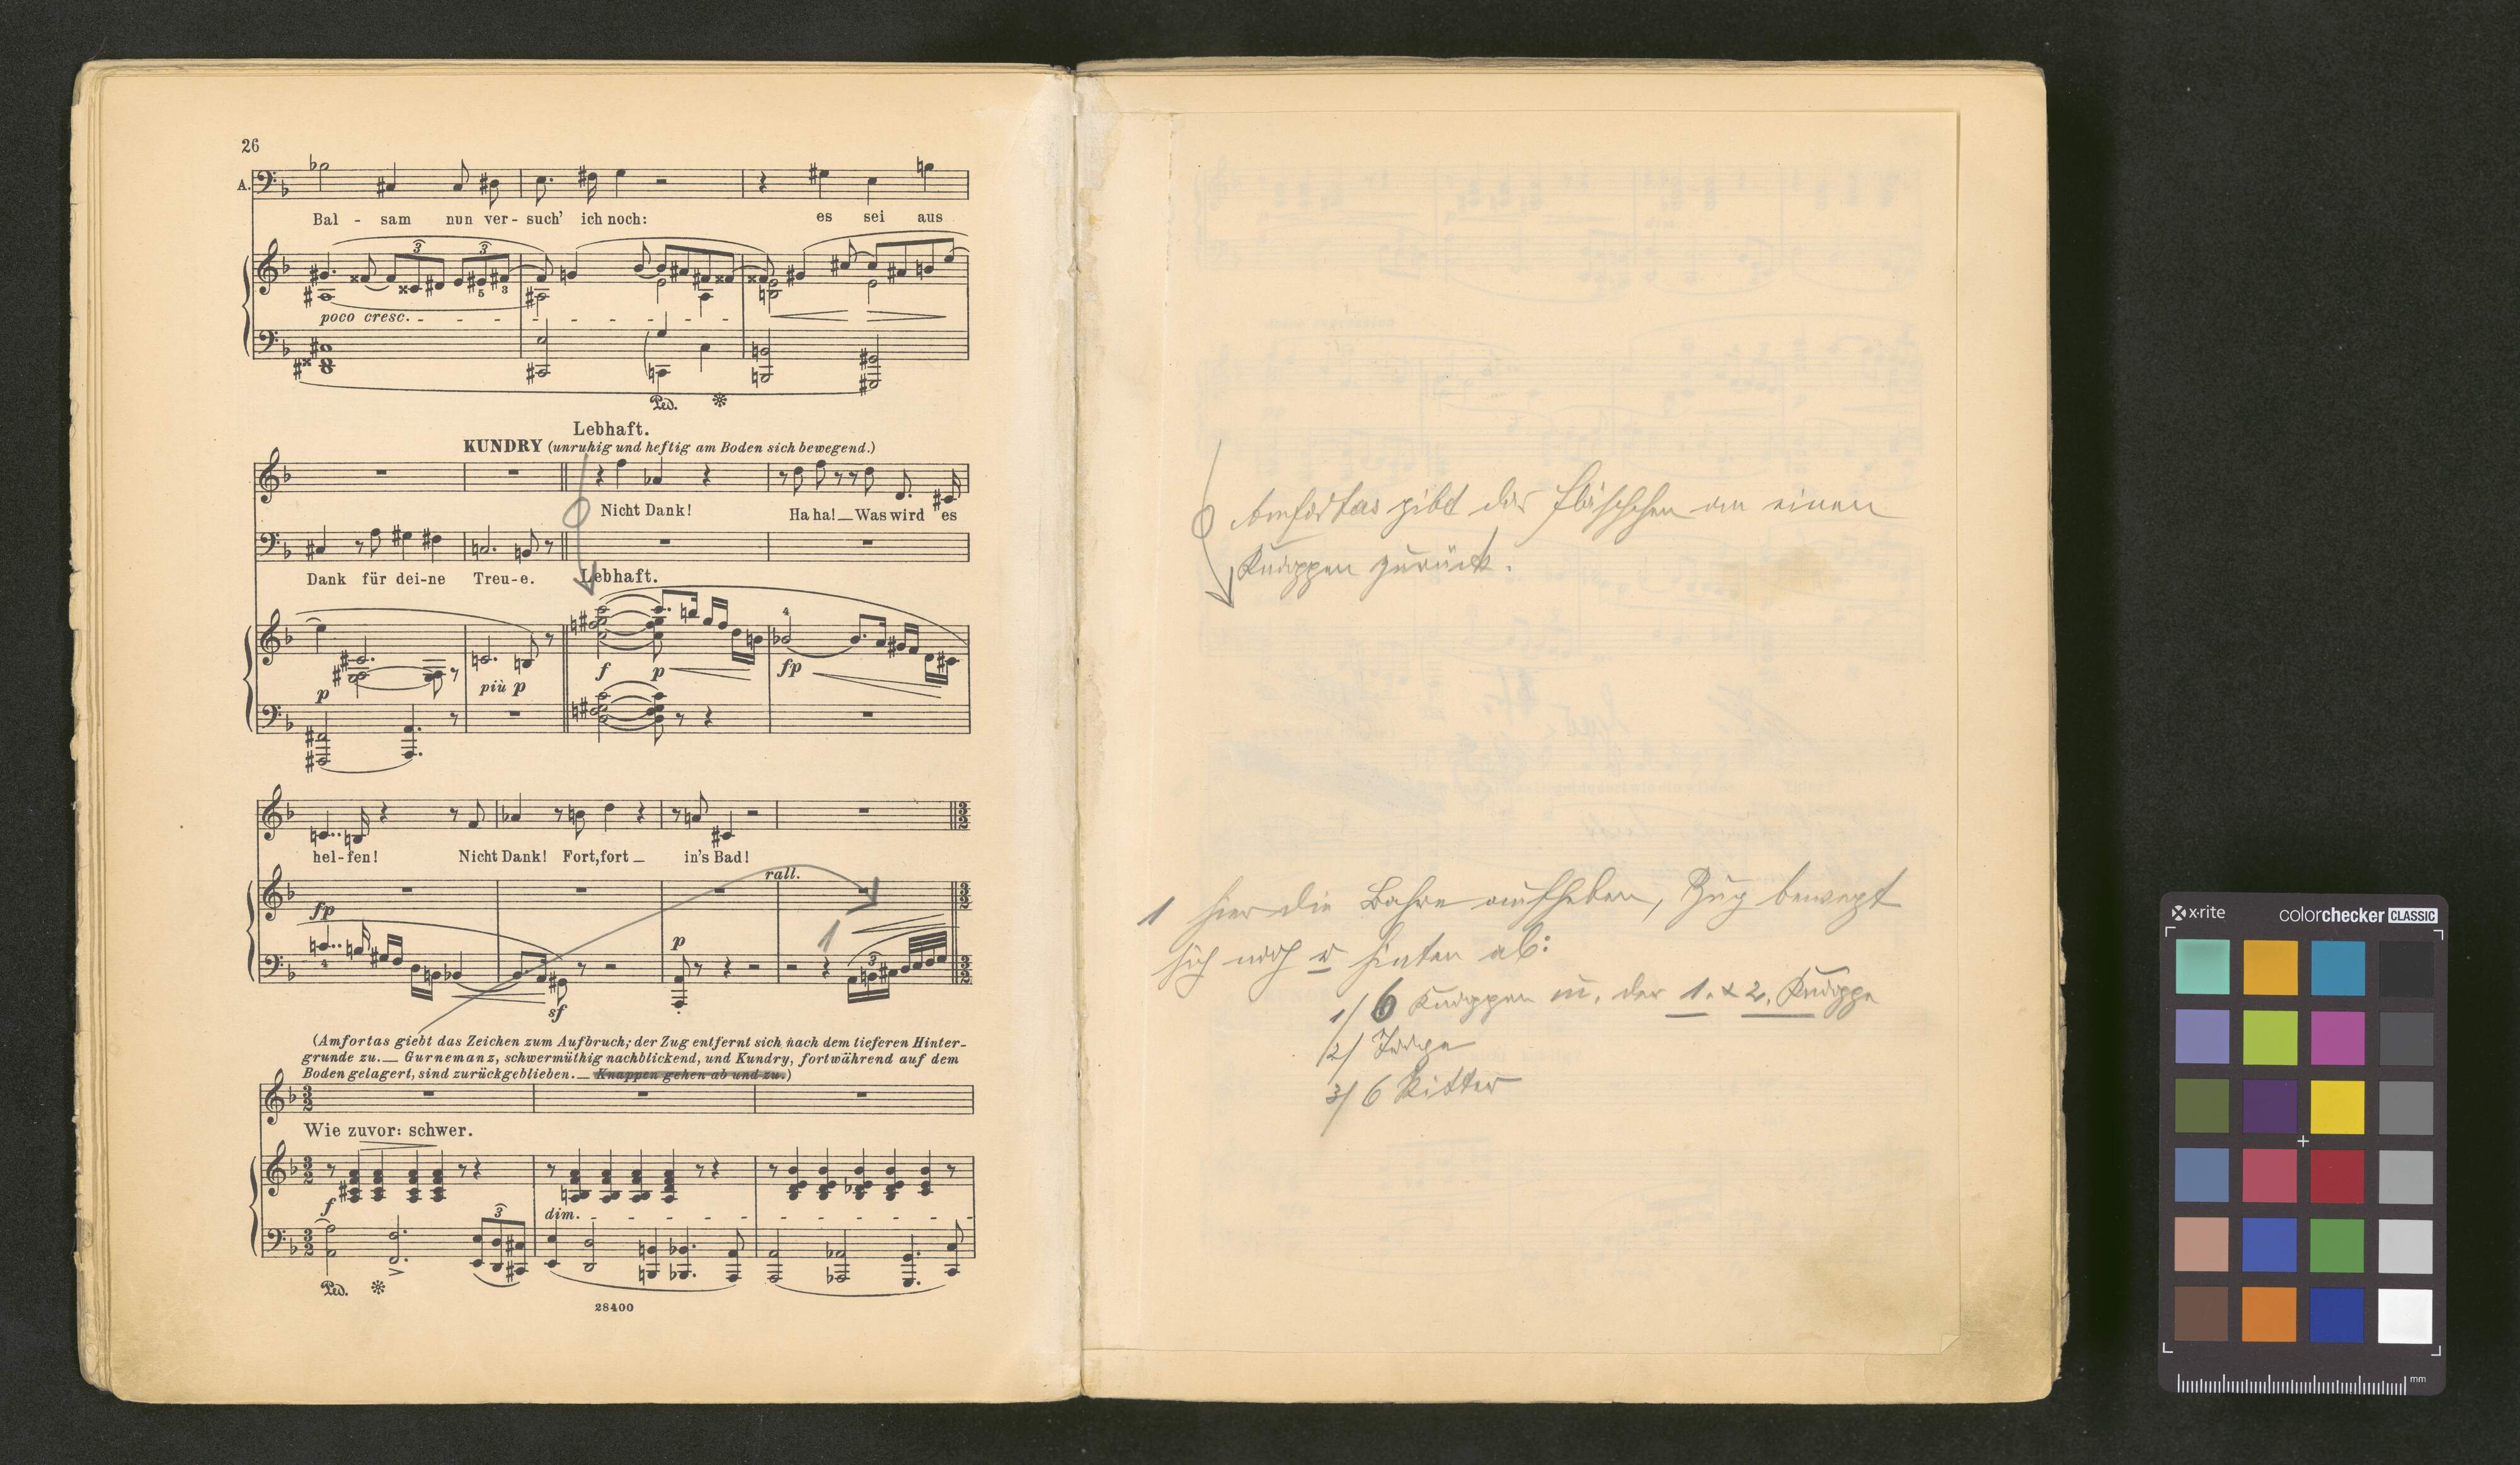 26
A.
Bal - sam nun ver - such' ich noch: es sei aus
3 3
5 3
poco cresc.
Ped. *
Lebhaft.
KUNDRY (unruhig und heftig am Boden sich bewegend.)
Nicht Dank! Ha ha! — Was wird es
Dank für dei-ne Treu-e. Lebhaft.
4
p più p f p fp
hel-fen! Nicht Dank! Fort, fort — in's Bad!
rall.
fp
1
p
4 3
sf
(Amfortas giebt das Zeichen zum Aufbruch; der Zug entfernt sich nach dem tieferen Hinter-
grunde zu. — Gurnemanz, schwermüthig nachblickend, und Kundry, fortwährend auf dem
Boden gelagert, sind zurückgeblieben. — Knappen gehen ab und zu.)
3/2
Wie zuvor: schwer.
f dim.
3
Ped. *
28400
Amfortas gibt das Fläschchen an einen
Knappen zurück.
1 hier die Bahre aufheben, Zug bewegt
sich nach r hinten ab:
1/ 6 Knappen m. der 1. & 2. Knappe
2/
3/ 6 Ritter
x-rite colorchecker CLASSIC
mm